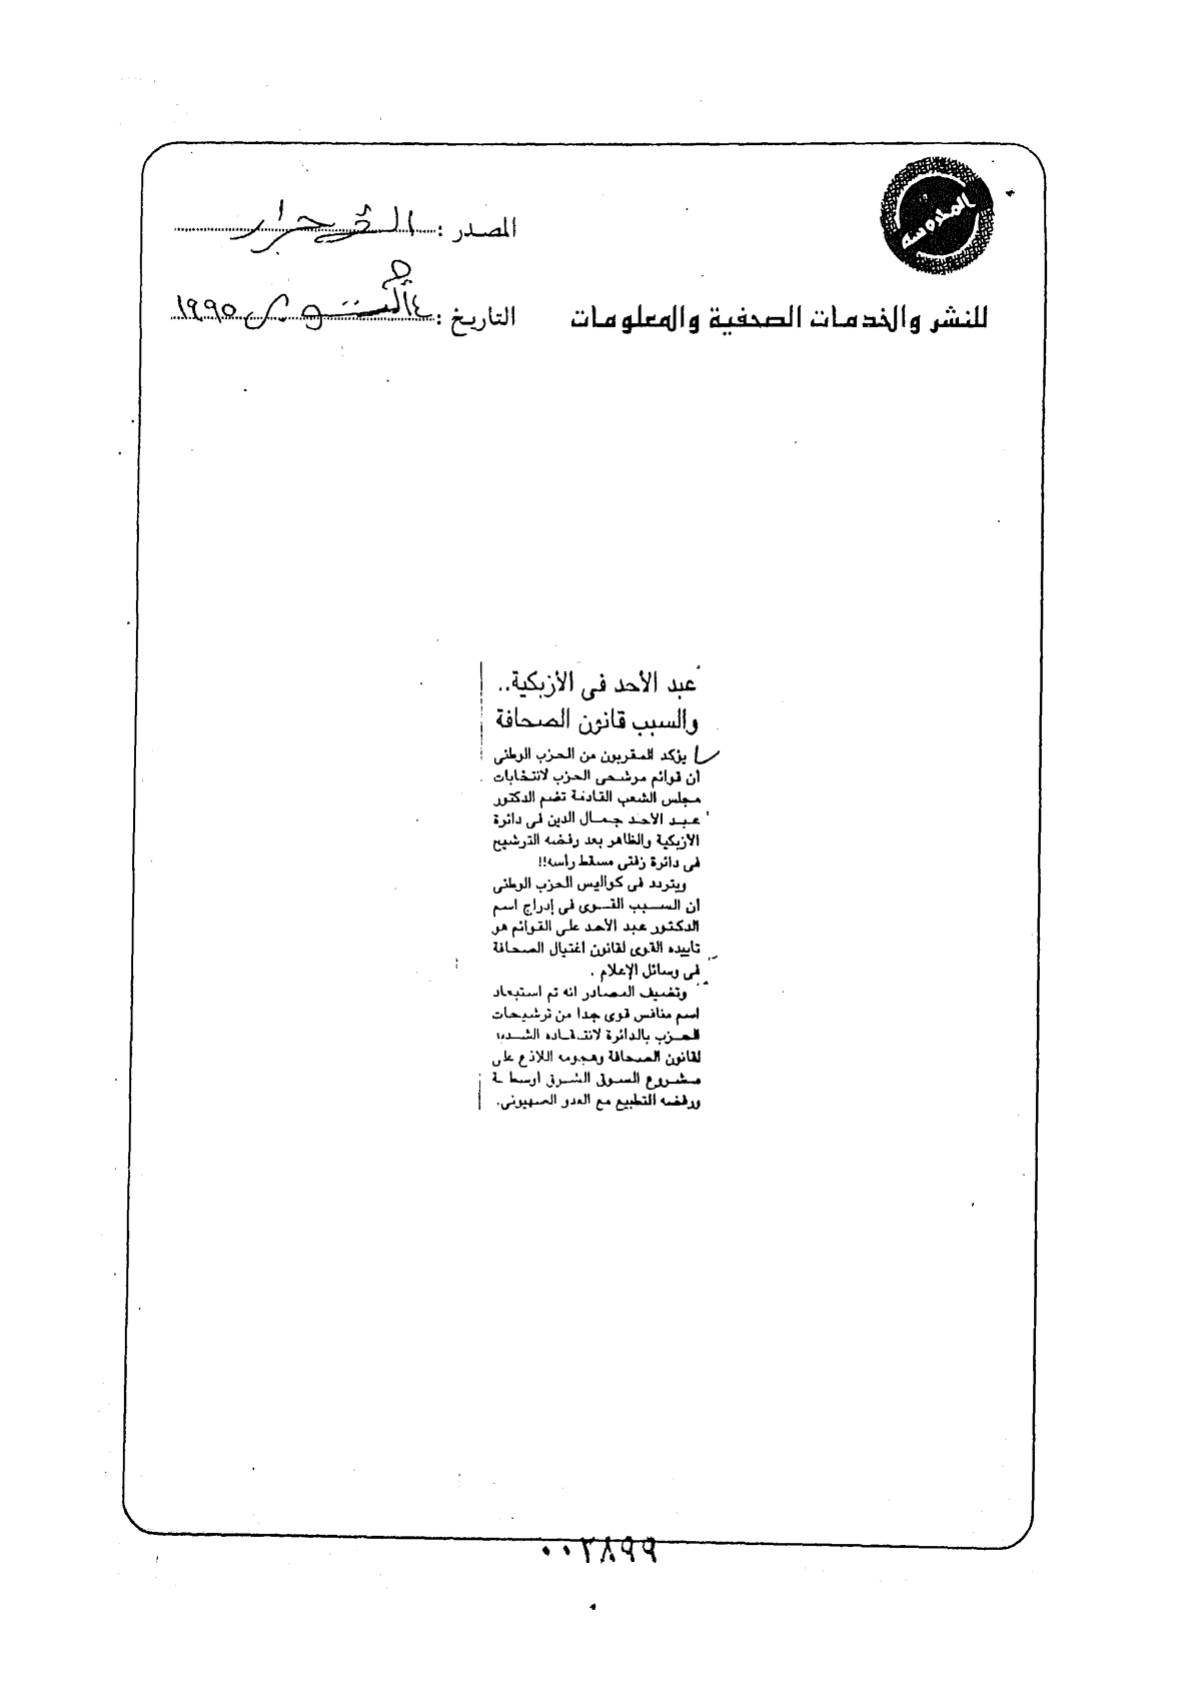 المحروسة
المصدر : الأحرار
للنشر والخدمات الصحفية والمعلومات
التاريخ : ١٩٩٥
عبد الأحد فى الأزبكية..
والسبب قانون الصحافة
يؤكد المقربون من الحزب الوطنى
أن قوائم مرشحى الحزب لانتخابات
مجلس الشعب القادمة تضم الدكتور
عبد الأحد جمال الدين فى دائرة
الأزبكية والظاهر بعد رفضه الترشيح
فى دائرة زفتى مسقط رأسه!!
ويتردد فى كواليس الحزب الوطنى
أن السبب القوى فى إدراج اسم
الدكتور عبد الأحد على القوائم هو
تأييده القوى لقانون اغتيال الصحافة
فى وسائل الإعلام .
وتضيف المصادر انه تم استبعاد
اسم منافس قوى جدا من ترشيحات
الحزب بالدائرة لانتقاده الشديد
لقانون الصحافة وهجومه اللاذع على
مشروع السوق الشرق اوسطية
ورفضه التطبيع مع العدو الصهيونى.
٠٠٢٨٩٩